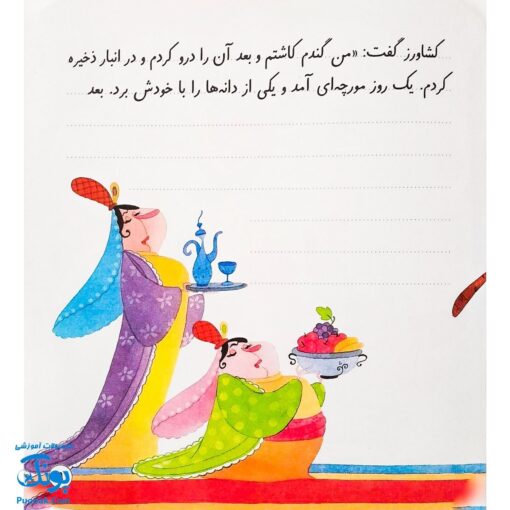 کشاورز گفت: «من گندم کاشتم و بعد آن را درو کردم و در انبار ذخیره
کردم. یک روز مورچه‌ای آمد و یکی از دانه‌ها را با خودش برد. بعد